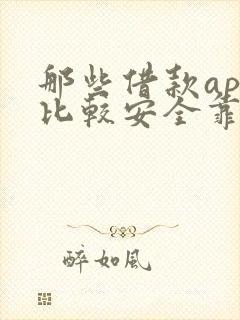 那些借款ap
比较安全靠
醉如风